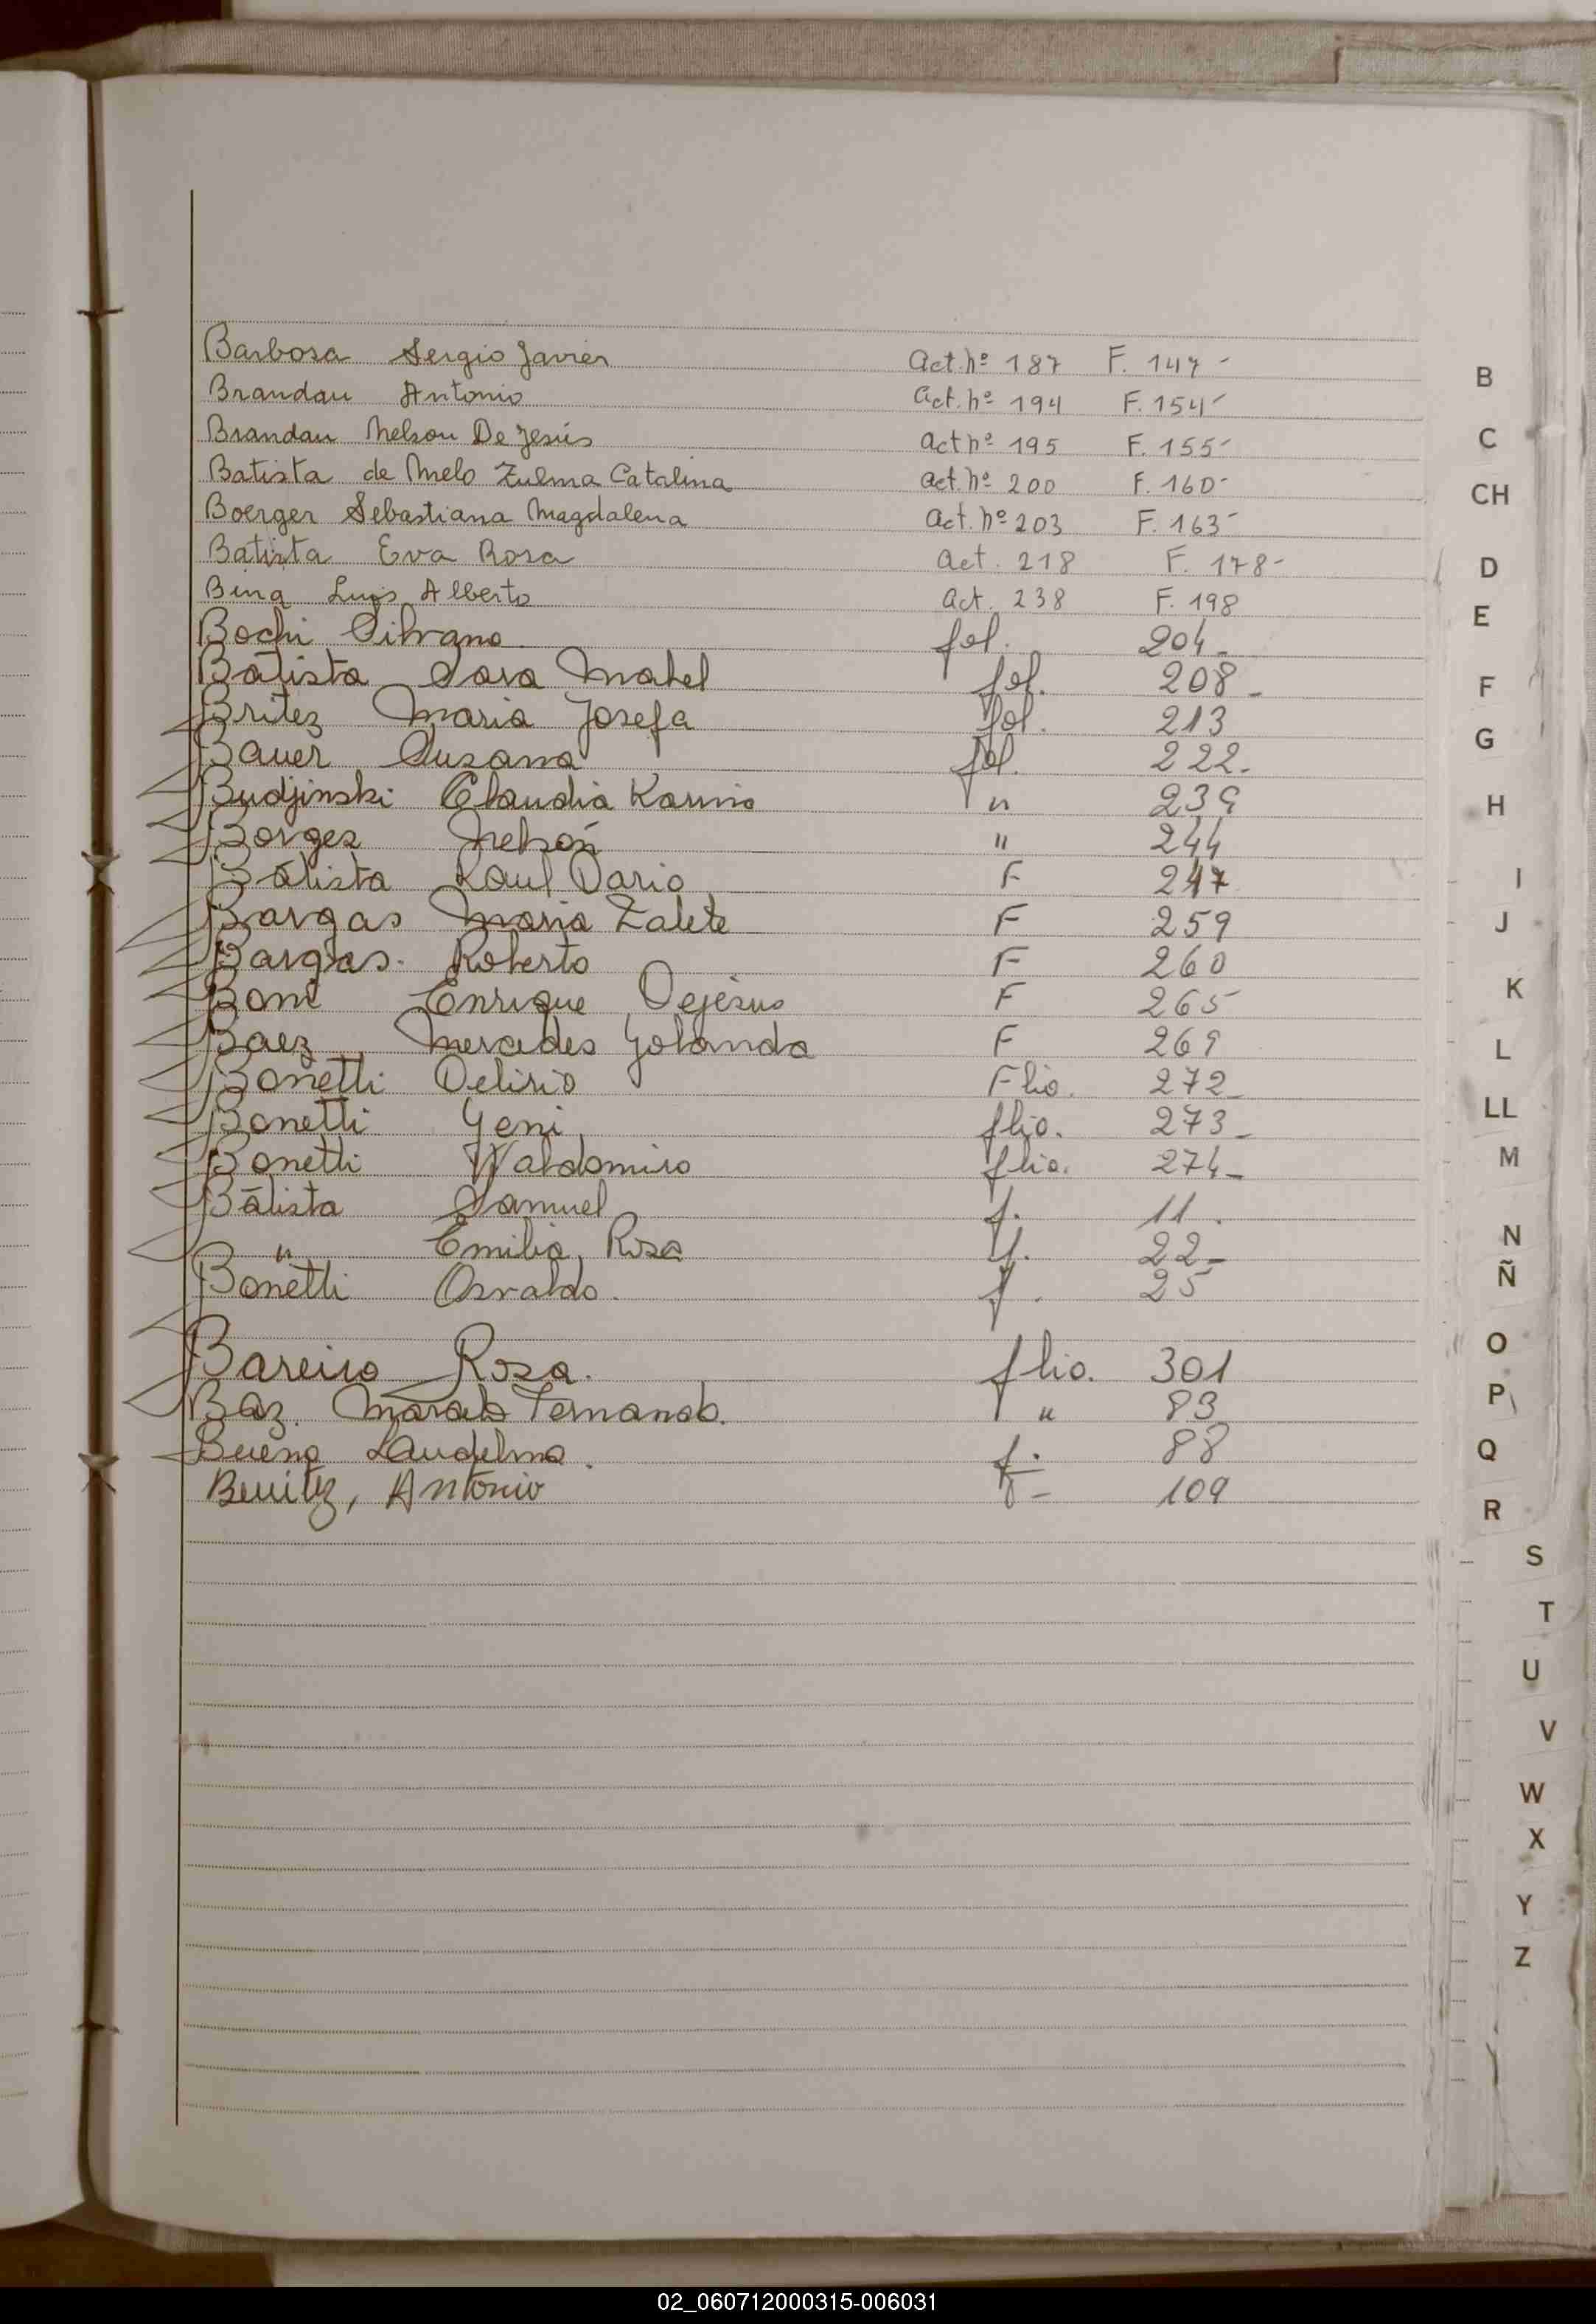 Barbosa Sergio Javier Act. nº 187 F. 147-
Brandau Antonio Act. nº 194 F. 154-
Brandau Nelson De Jesús Act nº 195 F. 155-
Batista de Melo Zulma Catalina Act. nº 200 F. 160-
Boerger Sebastiana Magdalena Act. nº 203 F. 163-
Batista Eva Rosa Act. 218 F. 178-
Bina Luis Alberto Act. 238 F. 198
Bochi Silvano fol. 204-
Batista Sara Mabel fol. 208-
Britez Maria Josefa fol. 213
Bauer Susana fol. 222-
Budjinski Claudia Karina " 239
Borges Nelson " 244
Batista Raul Dario F 247
Bargas Maria Zalete F 259
Bargas. Roberto F 260
Boni Enrique Dejesus F 265
Baez Mercedes Yolanda F 269
Bonetti Delirio Flio. 272-
Bonetti Yeni flio. 273-
Bonetti Waldomiro flio. 274-
Batista Samuel f. 11.
" Emilia Rosa f. 22-
Bonetti Osvaldo. f. 25
Bareiro Rosa. flio. 301
Baz. Marcelo Fernando. " 83
Bueno Laudelina. f. 88
Benitez, Antonio f- 109
B
C
CH
D
E
F
G
H
I
J
K
L
LL
M
N
Ñ
O
P
Q
R
S
T
U
V
W
X
Y
Z
02_060712000315-006031